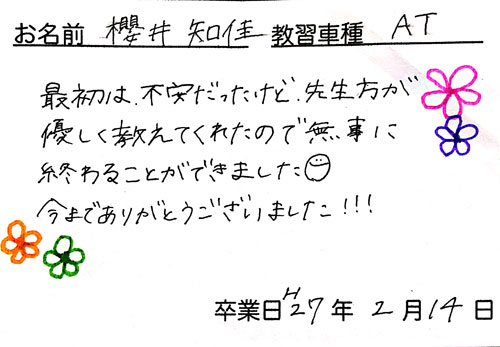 お名前 櫻井 知佳 教習車種 AT
最初は、不安だったけど、先生方が
優しく教えてくれたので無事に
終わることができました☺
今までありがとうございました!!!
卒業日 H27年 2月14日